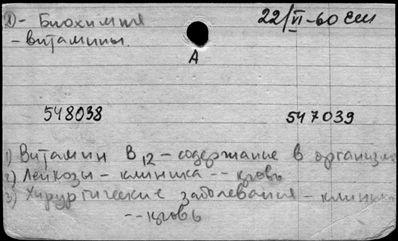 Д- Биохимия 22/VI-60 Сш
- витамины.
А
548038 547039
1) Витамин B12 - содержание в организме
2) Лейкозы - клиника -- кровь
3) Хирургические заболевания - клиника
-- кровь